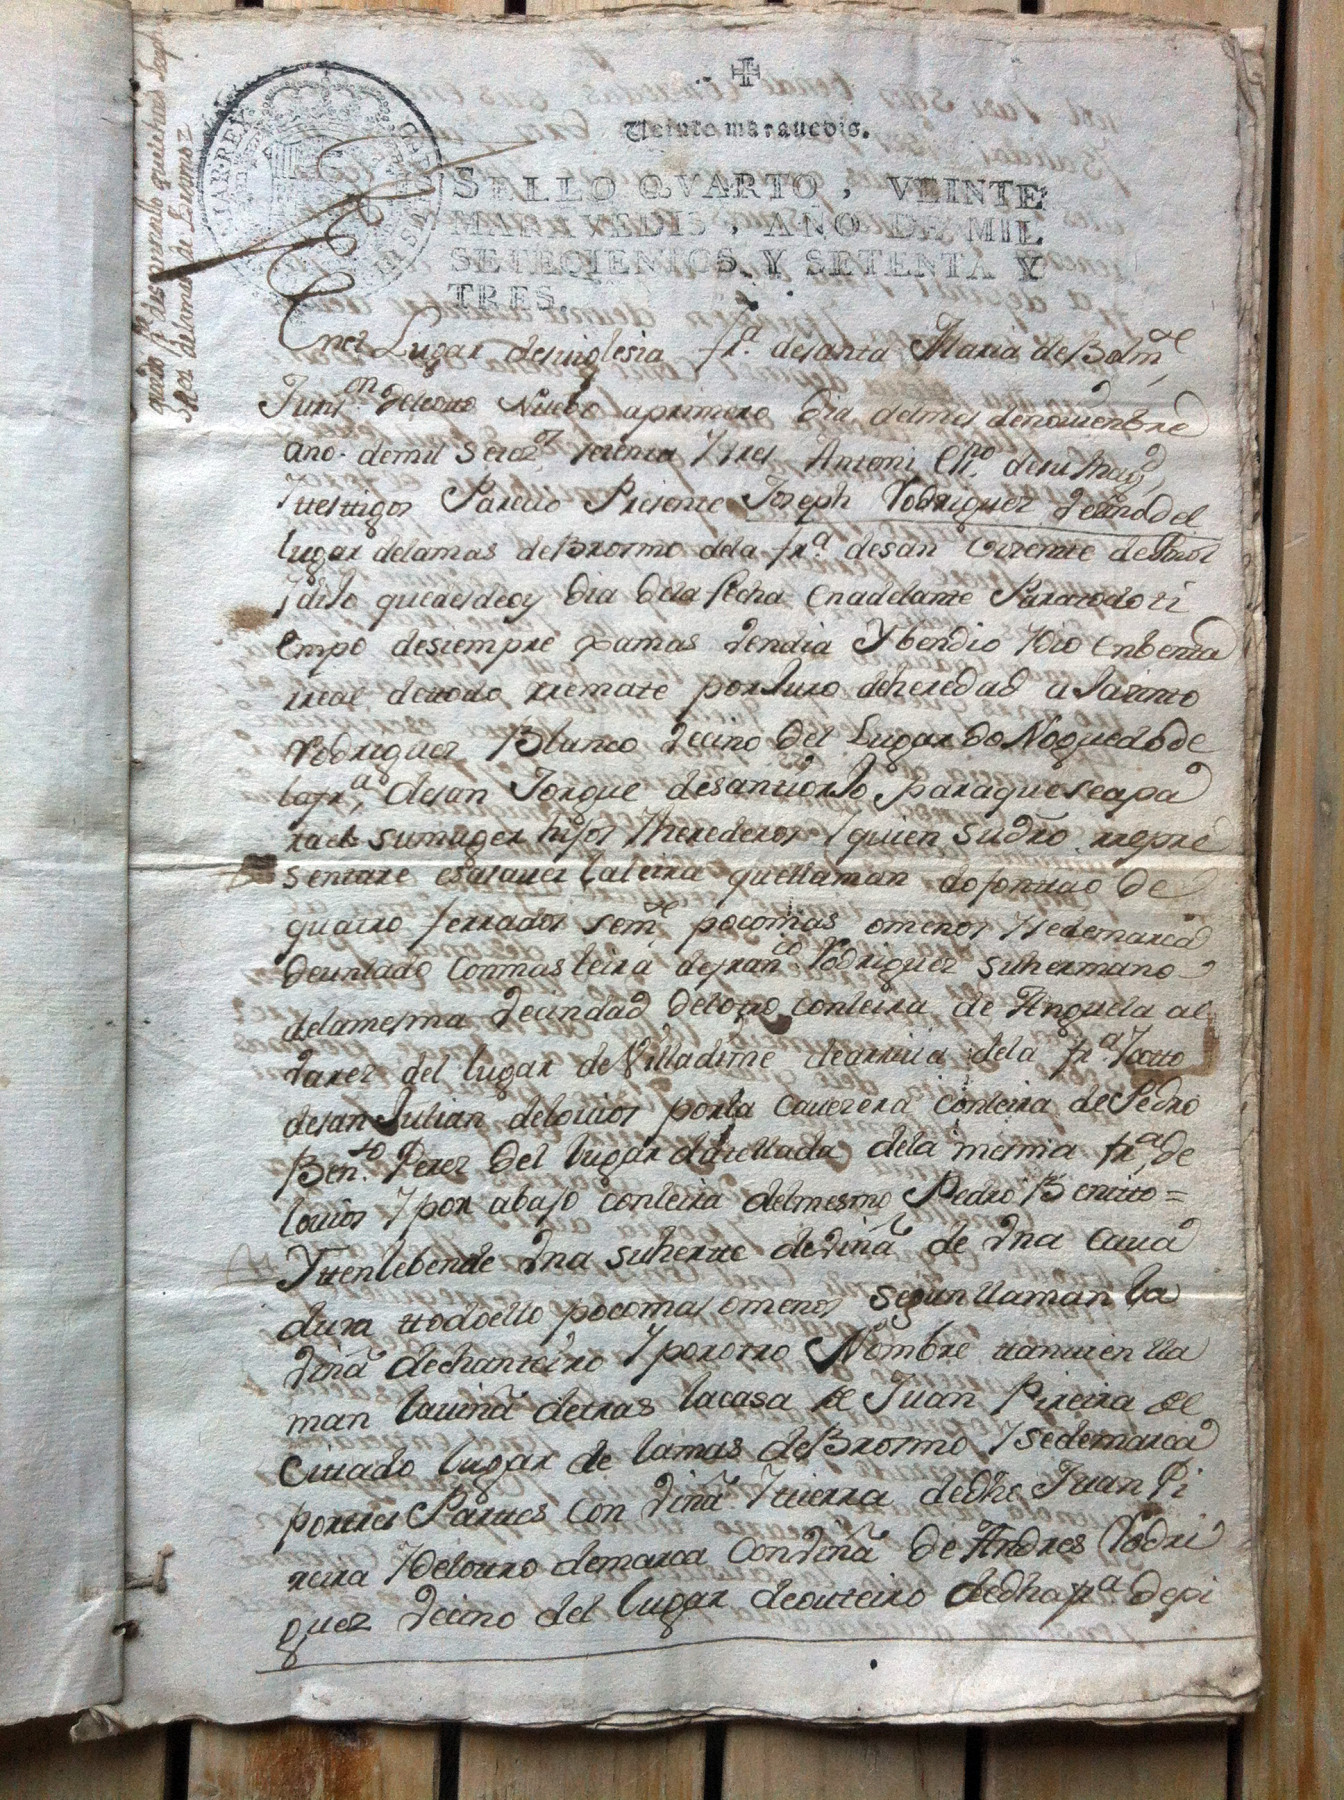 Veinte maravedis.
SELLO QVARTO, VEINTE
MARAVEDIS, AÑO DE MIL
SETECIENTOS Y SETENTA Y
TRES.
Enel Lugar desuiglesia fra. desanta Maria de
Juridon. delcotto Nuebo aprimero dia delmes denouienbre
ano. demil setez.os setenta Ytres Antemi Esno. desu Magd
Ytesttigos Parecio Presente Joseph Rodriguez Vecino del
lugar delamas deBrormo dela fra. desan
Ydijo quedesdeoy dia dela fecha Enadelante Paratodo ti
empo desiempre xamas Vendia Ybendio Ydio Enbenta
rreal detodo rremate porJuro deheredad a Jacinto
Rodriguez Blanco Vecino del Lugar do Noguedo de
lafra. desan Jorgue paraqueseapa
rael sumuger hijos Yherederos Yquien sudro. rrepre
sentare esasauer laleira quellaman dofontao de
quatro ferrados semte. pocomas omenos Ysedemarca
deunlado Conmasleira defranco Rodriguez suhermano
delamesma Vecindad delotro Conleira de Anguela al
varez del lugar deVilladime dearriua dela fra. Ycotto
desan Julian delouios porla Cauezera Conleira de Pedro
Bento. Perez del lugar dela mesma fra. de
louios Y por abajo Conleira delmesmo Pedro Benito =
Yttenlebende Vna suherte deViña de Vna Caua
dura ttodoello pocomas omenos segun llaman la
Viña dechanteiro Yporotro Nombre tamuien lla
man lauiña detras lacasa de Juan Pireira del
Cittado lugar de lamas deBrormo Ysedemarca
portres Partes Con Viña Ytierra dedho Juan Pi
reira Ydelotro demarca ConViña de Andres Rodri
guez Vecino del lugar deouteiro dedha fra. depi